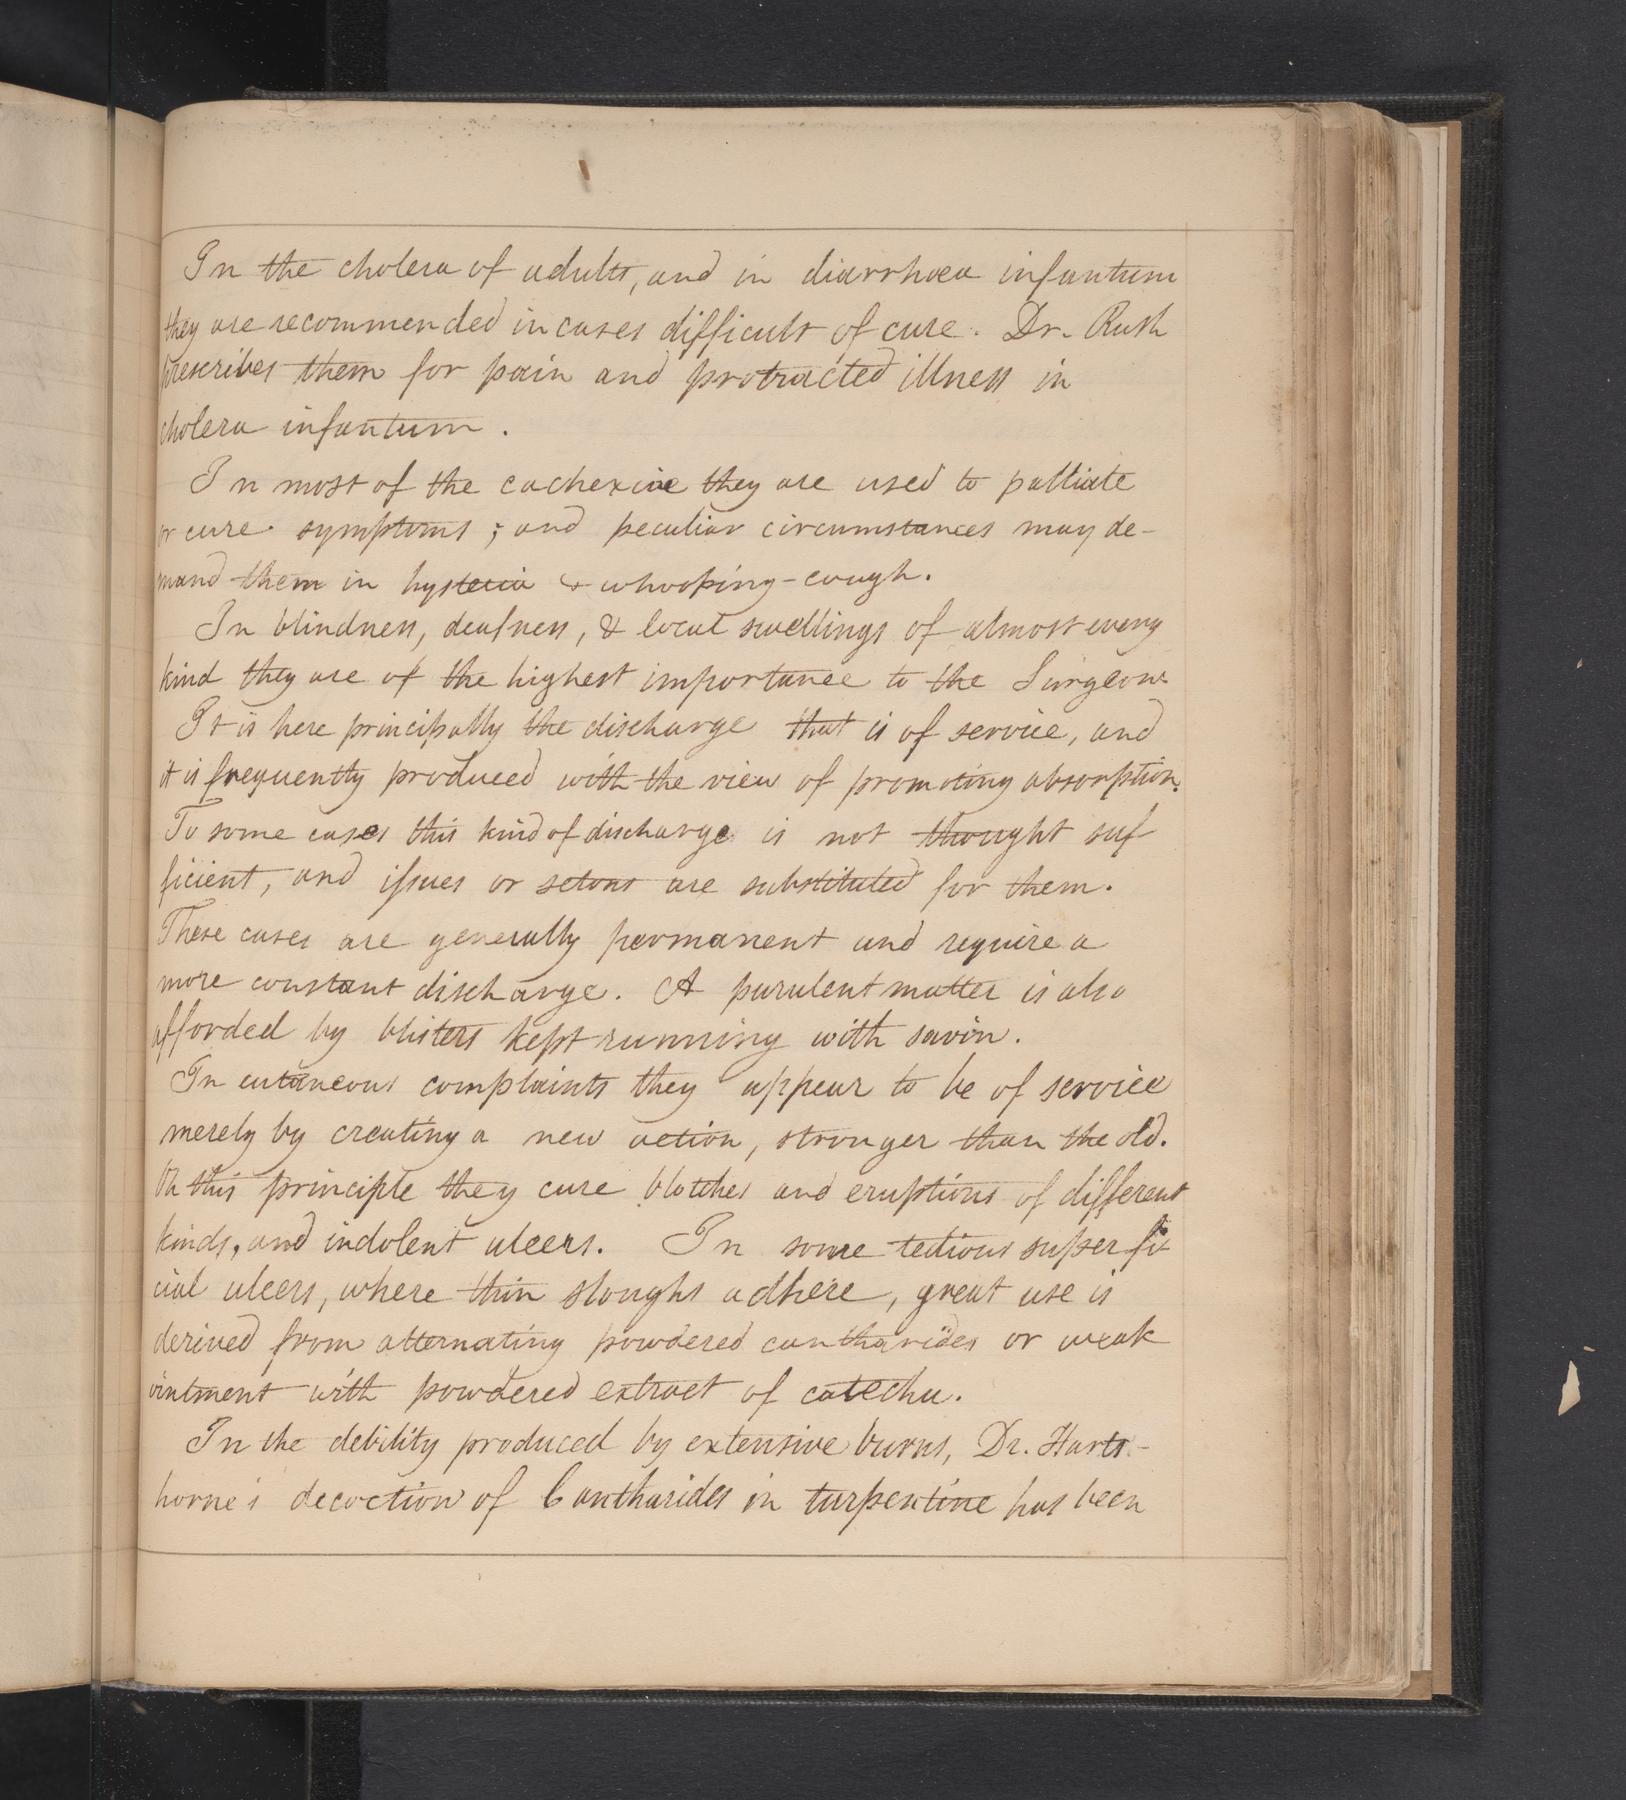 In the cholera of adults, and in diarrhœa infantum
they are recommended in cases difficult of cure. Dr. Rush
prescribes them for pain and protracted illness in
cholera infantum.
In most of the cachexiæ they are used to palliate
or cure symptoms; and peculiar circumstances may de-
mand them in hysteria & whooping-cough.
In blindness, deafness, & local swellings of almost every
kind they are of the highest importance to the Surgeon.
It is here principally the discharge that is of service, and
it is frequently produced with the view of promoting absorption.
To some cases this kind of discharge is not thought suf
ficient, and issues or setons are substituted for them.
These cases are generally permanent and require a
more constant discharge. A purulent matter is also
afforded by blisters kept running with savin.
In cutaneous complaints they appear to be of service
merely by creating a new action, stronger than the old.
On this principle they cure blotches and eruptions of different
kinds, and indolent ulcers. In some tedious superfi
cial ulcers, where thin sloughs adhere, great use is
derived from alternating powdered cantharides or weak
ointment with powdered extract of catechu.
In the debility produced by extensive burns, Dr. Harts-
horne's decoction of Cantharides in turpentine has been